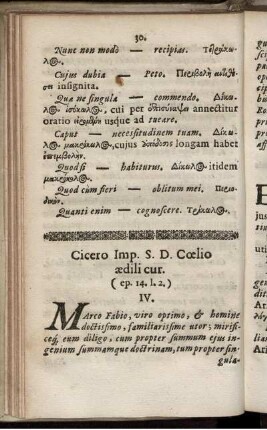 30.
Nunc non modo — recipias. Τετράκω-
λ⊙.
Cujus dubia — Peto. Περιβολὴ
insignita.
Qua ne singula — commendo. Δίκω-
λ⊙. ἰσόκωλ⊙, cui per annectitur
oratio usque ad ducare.
Caput — necessitudinem tuam. Δίκω-
λ⊙ μακρόκωλ⊙, cujus longam habet
Quod si — habiturus. Δίκωλ⊙ itidem
μακρόκωλ⊙.
Quod cum fieri — oblitum mei. Περιο-
Quanti enim — cognoscere. Τρίκωλ⊙.
Cicero Imp. S. D. Cœlio
ædili cur.
( ep. 14. l. 2. )
IV.
Marco Fabio, viro optimo, & homine
doctissimo, familiarissime utor; mirifi-
ceq; eum diligo, cum propter summum ejus in-
genium summamque doctrinam, tum propter sin-
gula-